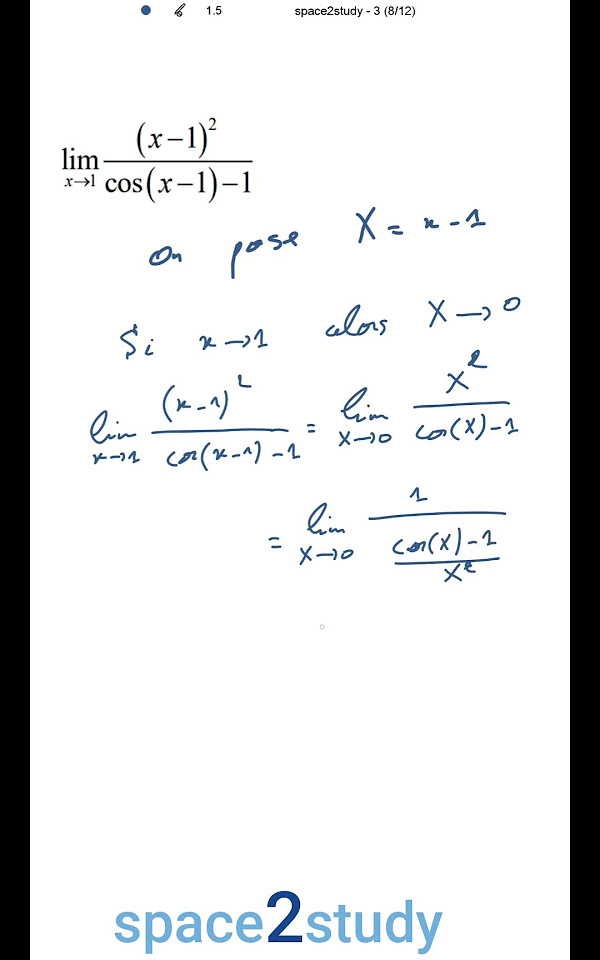 1.5 space2study - 3 (8/12)
lim x→1 (x−1)² / cos(x−1)−1
On pose X = x - 1
Si x → 1 alors X → 0
lim x→1 (x-1)² / cos(x-1) - 1 = lim X→0 X² / cos(X) - 1
= lim X→0 1 / (cos(X) - 1 / X²)
space2study